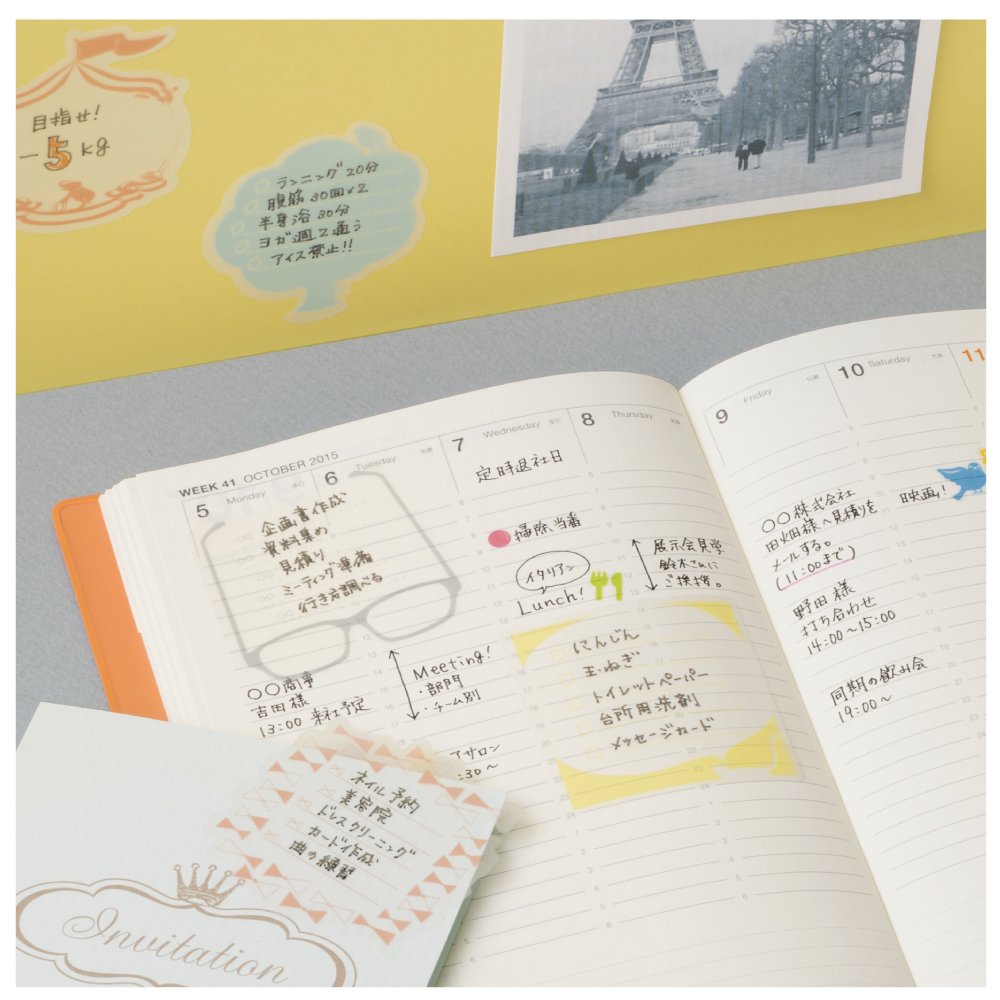 目指せ!
-5kg
ランニング 20分
腹筋 30回×2
半身浴 30分
ヨガ週2通う
アイス禁止!!
WEEK 41 OCTOBER 2015
5 Monday
6 Tuesday
7 Wednesday
8 Thursday
企画書作成
資料集め
見積り
ミーティング準備
行き方調べる
〇〇商事
吉田様
13:00 来社予定
Meeting!
・部門
・チーム別
アサロン
:30～
定時退社日
掃除当番
イタリアン
Lunch!
展示会見学
鈴木さんに
ご挨拶。
にんじん
玉ねぎ
トイレットペーパー
台所用洗剤
メッセージカード
9 Friday
10 Saturday
11
〇〇株式会社
田畑様へ見積りを
メールする。
(11:00まで)
野田様
打ち合わせ
14:00～15:00
同期の飲み会
19:00～
映画!
ネイル予約
美容院
ドレスクリーニング
カード作成
曲の練習
Invitation